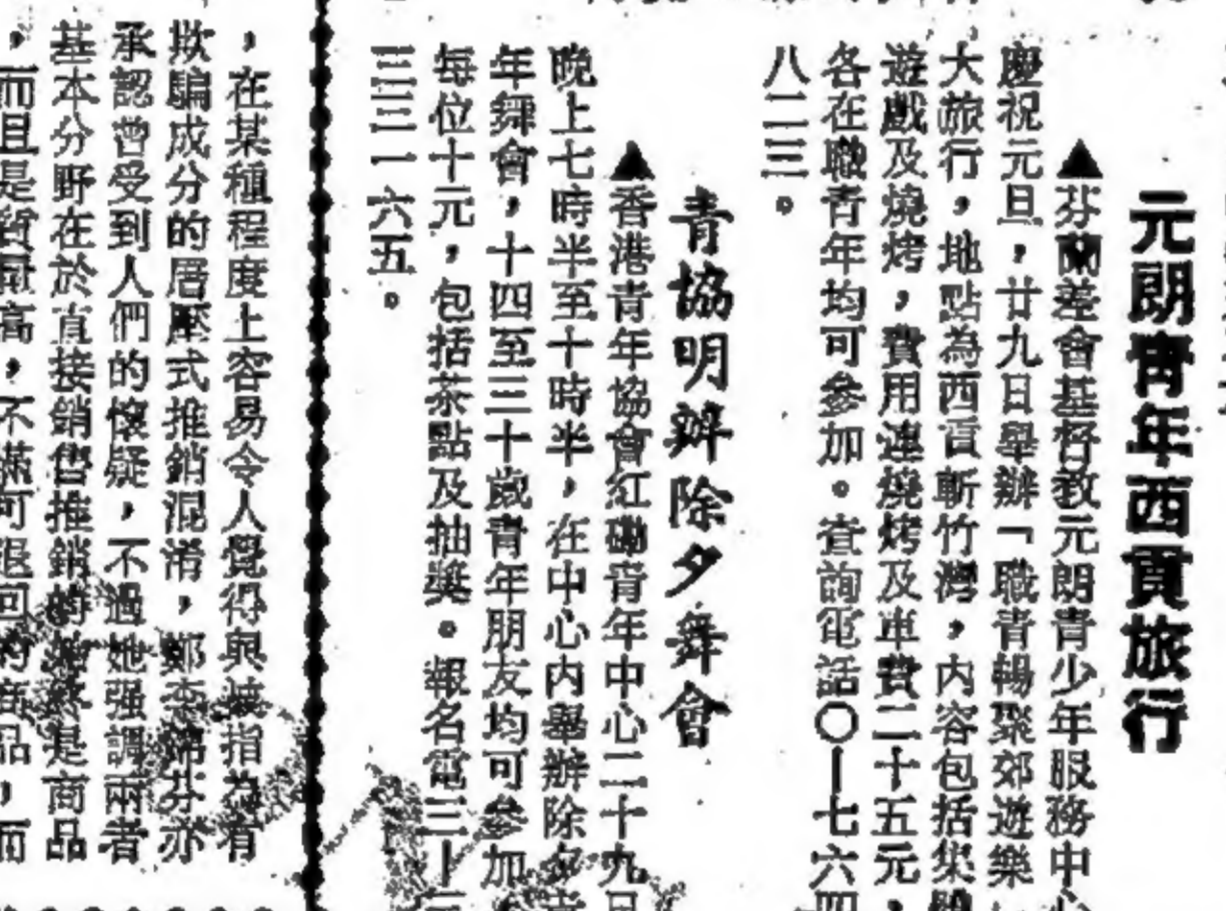 元朗青年西貢旅行
▲芬蘭差會基督教元朗青少年服務中心
慶祝元旦，廿九日舉辦「職青暢聚郊遊樂
大旅行，地點為西貢斬竹灣，內容包括集體
遊戲及燒烤，費用連燒烤及車費二十五元，
各在職青年均可參加。查詢電話〇—七六四
八二三。
青協明辦除夕舞會
▲香港青年協會紅磡青年中心二十九日
晚上七時半至十時半，在中心內舉辦除夕
年舞會，十四至三十歲青年朋友均可參加
每位十元，包括茶點及抽獎。報名電三—三
三三一六五。
，在某種程度上容易令人覺得與被指為有
欺騙成分的層壓式推銷混淆，鄭李錦芬亦
承認曾受到人們的懷疑，不過她强調兩者
基本分野在於直接銷售推銷的始終是商品
，而且是質量高，不滿可退回的商品，而